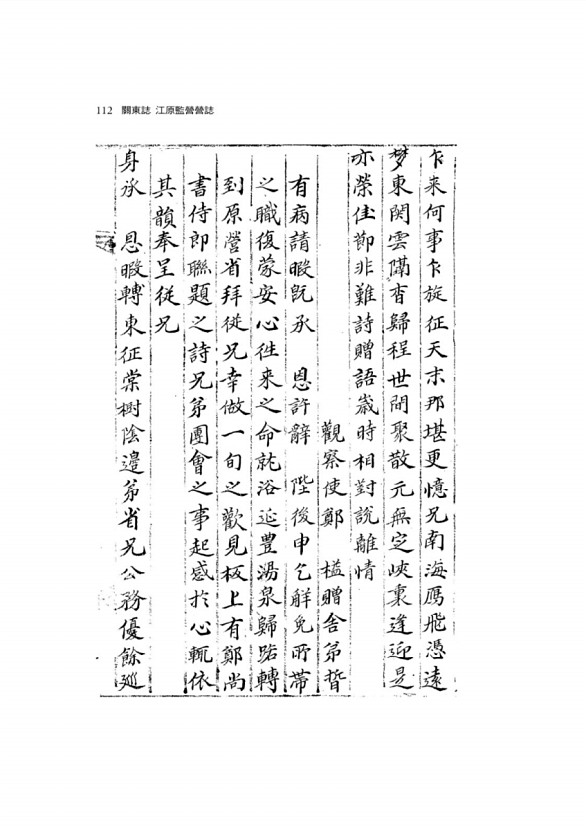 112 關東誌 江原監營營誌
乍来何事乍旋征天末那堪更憶兄南海鴈飛憑遠
梦東関雲隔杳歸程世間聚散元無定峽裏逢迎是
亦榮佳節非難詩贈語歲時相對說離情
觀察使鄭 榏贈舍弟晢
有病請暇旣承 恩許辭 陛後申乞觧免所帶
之職復蒙安心徃来之命就浴延豊湯泉歸路轉
到原營省拜從兄幸做一旬之歡見板上有鄭尚
書侍郎聯題之詩兄弟團會之事起感扵心輒依
其韻奉呈從兄
身承 恩暇轉東征棠樹陰邊弟省兄公務優餘廵